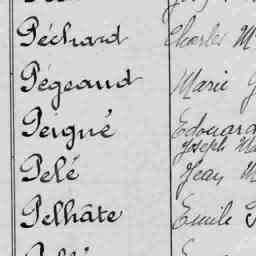 Péchard Charles M
Pégeaud Marie
Peigné Edouard
Joseph
Pelé Jean M
Pelhâte Emile